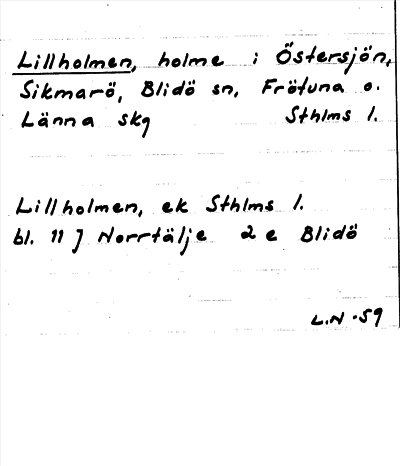 Lillholmen, holme i Östersjön,
Sikmarö, Blidö sn, Frötuna o.
Länna skg Sthlms l.
Lillholmen, ek Sthlms l.
bl. 11 J Norrtälje 2 e Blidö
L.N -59